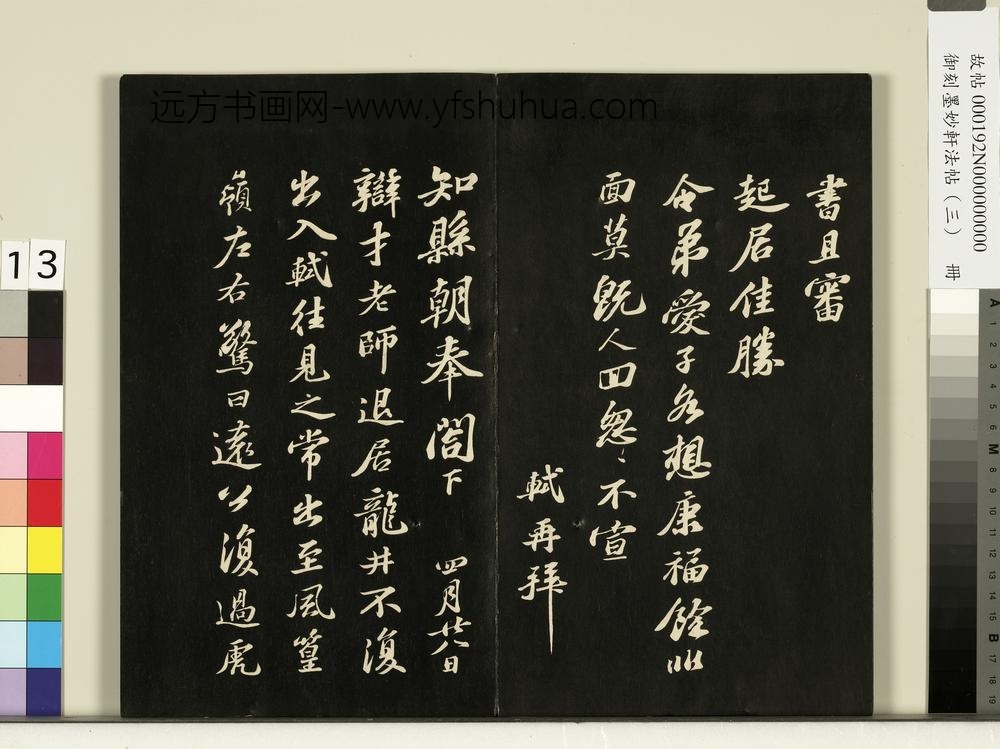 書且審
起居佳勝
令弟愛子各想康福餘非
面莫既人回怱〻不宣
軾再拜
知縣朝奉閤下 四月廿八日
辯才老師退居龍井不復
出入軾往見之常出至風篁
嶺左右驚曰遠公復過虎
远方书画网-www.yfshuhua.com
故帖000192N000000000
御刻墨妙軒法帖(三) 冊
13
A 1 2 3 4 5 6 M 8 9 10 11 12 13 14 15 B 17 18 19